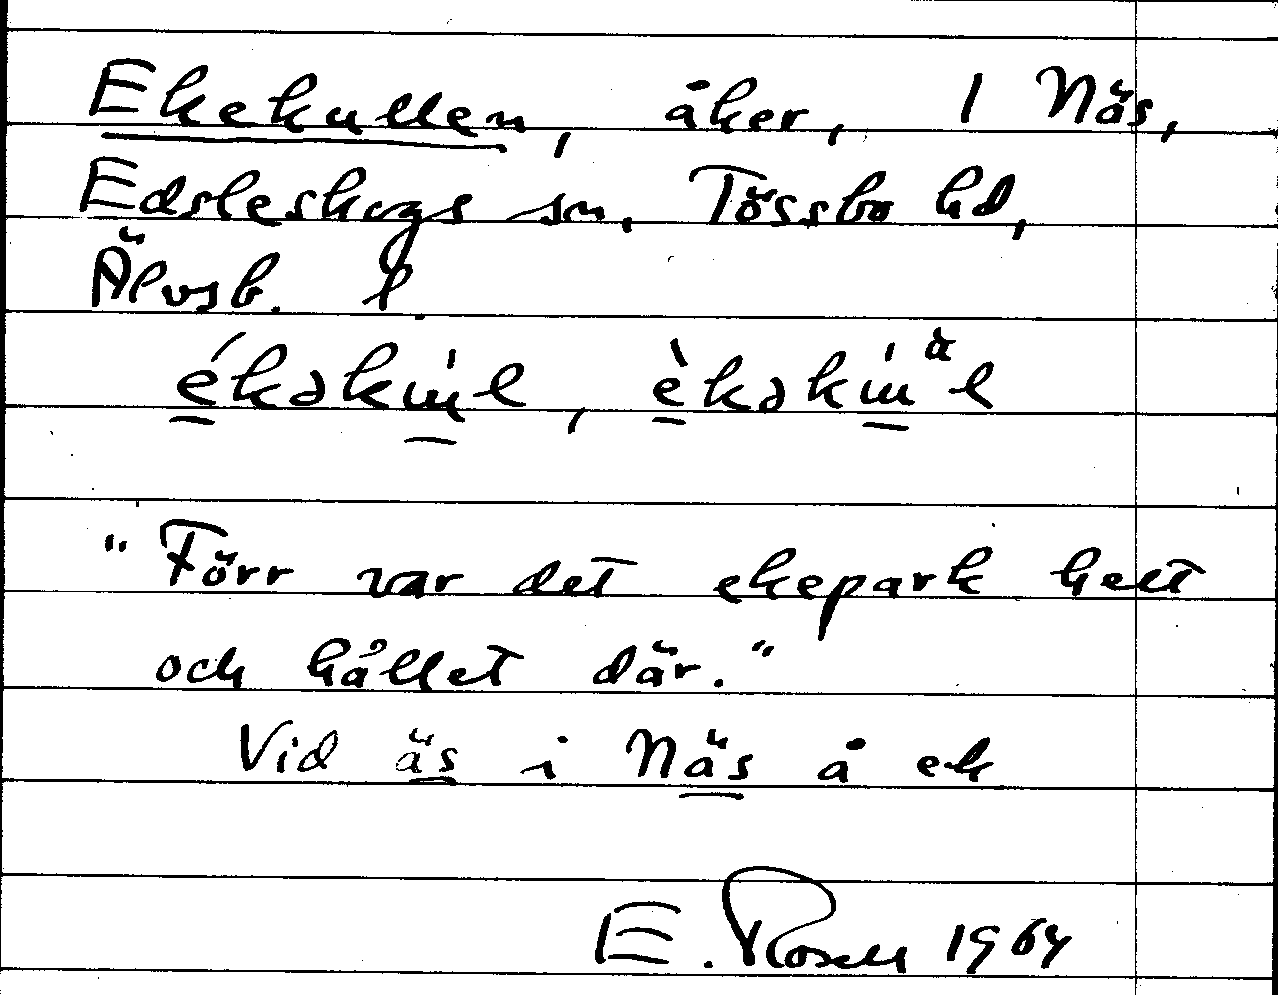 Ekekullen, åker, 1 Näs,
Edsleskogs sn, Tössbo hd,
Älvsb. l.
"Förr var det ekepark helt
och hållet där."
Vid äs i Näs å ek
E. Rosell 1964